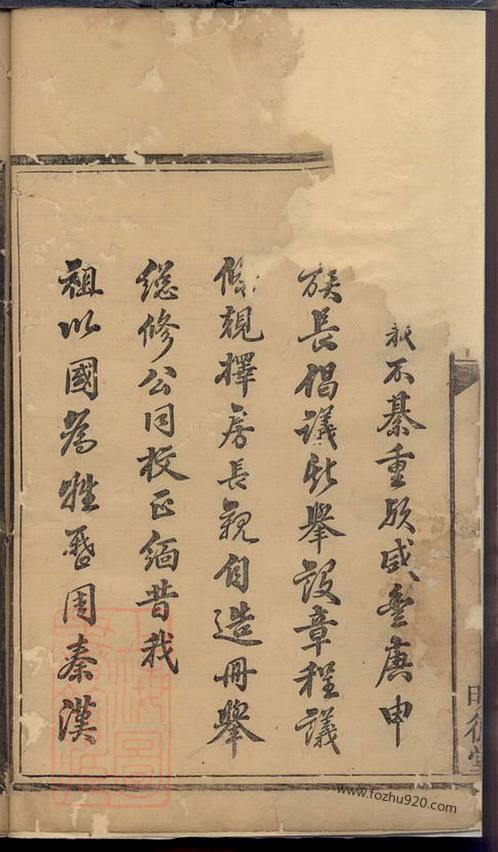 不綦重歟咸豐庚申
族長倡議斯舉設章程議
條規擇房長親自造冊舉
總修公同校正緬昔我
祖以國為姓歷周秦漢
www.fozhu920.com